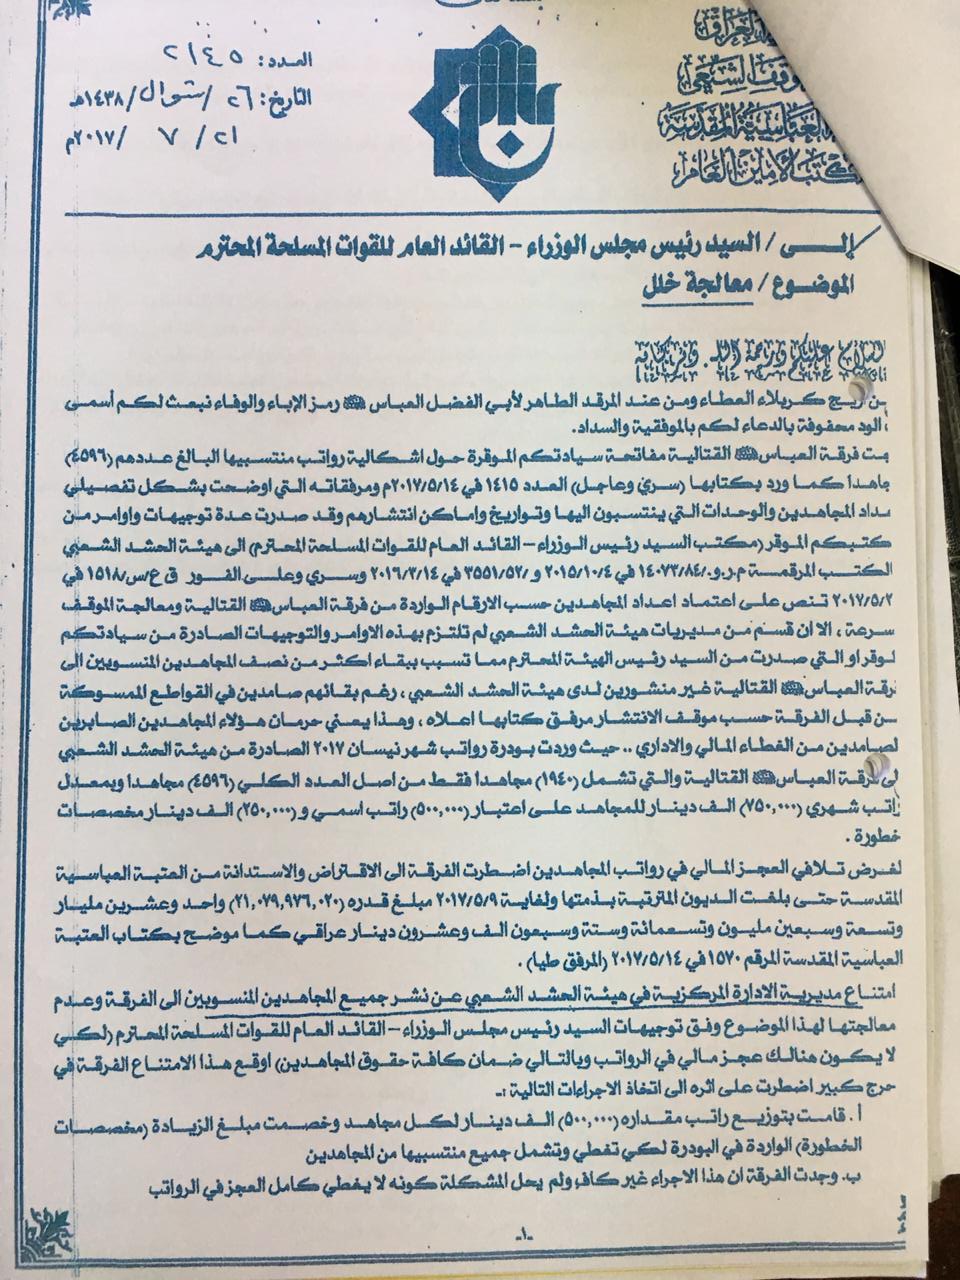 العراق
الوقف الشيعي
العباسية المقدسة
مكتب الأمين العام
العدد: ٢١٤٥
التاريخ: ٢٦ /شوال/١٤٣٨هـ
٢١ / ٧ /٢٠١٧م
إلـــى / السيد رئيس مجلس الوزراء – القائد العام للقوات المسلحة المحترم
الموضوع / معالجة خلل
السلام عليكم ورحمة الله وبركاته
من أريج كربلاء العطاء ومن عند المرقد الطاهر لأبي الفضل العباس رمز الإباء والوفاء نبعث لكم أسمى
الود محفوفة بالدعاء لكم بالموفقية والسداد.
فرقة العباس القتالية مفاتحة سيادتكم الموقرة حول اشكالية رواتب منتسبيها البالغ عددهم (٤٥٩٦)
جاهدا كما ورد بكتابها (سري وعاجل) العدد ١٤١٥ في ٢٠١٧/٥/١٤م ومرفقاته التي اوضحت بشكل تفصيلي
داد المجاهدين والوحدات التي ينتسبون اليها وتواريخ واماكن انتشارهم وقد صدرت عدة توجيهات واوامر من
كتبكم الموقر (مكتب السيد رئيس الوزراء – القائد العام للقوات المسلحة المحترم) الى هيئة الحشد الشعبي
الكتب المرقمة م.ر.و/١٤٠٧٣/٨٤ في ٢٠١٥/١٠/٤ و ٣٥٥١/٥٢/ في ٢٠١٦/٣/١٤ وسري وعلى الفور ق ع/س/١٥١٨ في
٢٠١٧/٥/٢ تنص على اعتماد اعداد المجاهدين حسب الارقام الواردة من فرقة العباس القتالية ومعالجة الموقف
سرعة ، الا ان قسم من مديريات هيئة الحشد الشعبي لم تلتزم بهذه الاوامر والتوجيهات الصادرة من سيادتكم
لوقر او التي صدرت من السيد رئيس الهيئة المحترم مما تسبب ببقاء اكثر من نصف المجاهدين المنسوبين الى
رقة العباس القتالية غير منشورين لدى هيئة الحشد الشعبي ، رغم بقائهم صامدين في القواطع الممسوكة
من قبل الفرقة حسب موقف الانتشار مرفق كتابها اعلاه ، وهذا يعني حرمان هؤلاء المجاهدين الصابرين
لصامدين من الغطاء المالي والاداري .. حيث وردت بودرة رواتب شهر نيسان ٢٠١٧ الصادرة من هيئة الحشد الشعبي
لى فرقة العباس القتالية والتي تشمل (١٩٤٠) مجاهدا فقط من اصل العدد الكلي (٤٥٩٦) مجاهدا وبمعدل
راتب شهري (٧٥٠,٠٠٠) الف دينار للمجاهد على اعتبار (٥٠٠,٠٠٠) راتب اسمي و (٢٥٠,٠٠٠) الف دينار مخصصات
خطورة .
لغرض تلافي العجز المالي في رواتب المجاهدين اضطرت الفرقة الى الاقتراض والاستدانة من العتبة العباسية
المقدسة حتى بلغت الديون المترتبة بذمتها ولغاية ٢٠١٧/٥/٩ مبلغ قدره (٢١,٠٧٩,٩٧٦,٠٢٠) واحد وعشرين مليار
وتسعة وسبعين مليون وتسعمائة وستة وسبعون الف وعشرون دينار عراقي كما موضح بكتاب العتبة
العباسية المقدسة المرقم ١٥٧٠ في ٢٠١٧/٥/١٤ (المرفق طيا) .
امتناع مديرية الادارة المركزية في هيئة الحشد الشعبي عن نشر جميع المجاهدين المنسوبين الى الفرقة وعدم
معالجتها لهذا الموضوع وفق توجيهات السيد رئيس مجلس الوزراء – القائد العام للقوات المسلحة المحترم (لكي
لا يكون هنالك عجز مالي في الرواتب وبالتالي ضمان كافة حقوق المجاهدين) اوقع هذا الامتناع الفرقة في
حرج كبير اضطرت على اثره الى اتخاذ الاجراءات التالية :ـ
أ . قامت بتوزيع راتب مقداره (٥٠٠,٠٠٠) الف دينار لكل مجاهد وخصمت مبلغ الزيادة (مخصصات
الخطورة) الواردة في البودرة لكي تغطي وتشمل جميع منتسبيها من المجاهدين
ب. وجدت الفرقة ان هذا الاجراء غير كاف ولم يحل المشكلة كونه لا يغطي كامل العجز في الرواتب
-١-